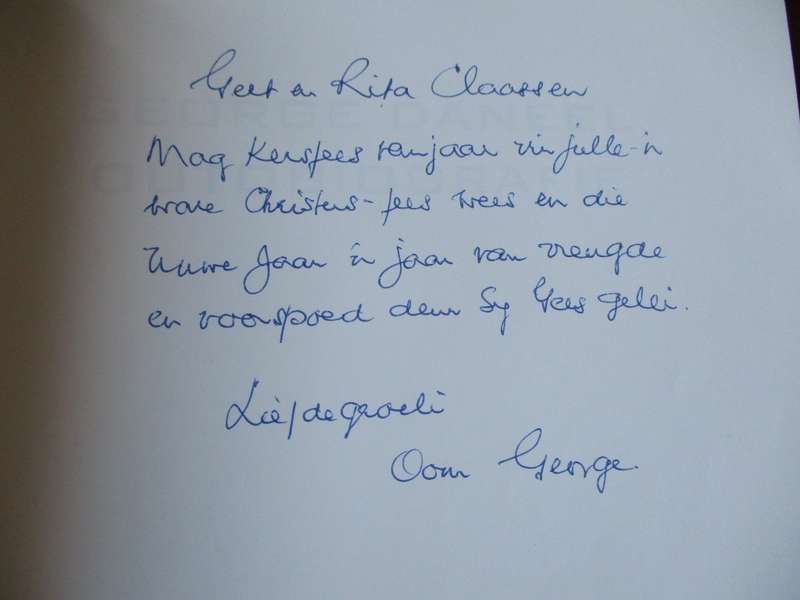 Geet en Rita Claassen
Mag Kersfees vanjaar vir julle 'n
ware Christus-fees wees en die
Nuwe Jaar 'n jaar van vreugde
en voorspoed deur Sy Gees gelei.
Liefdegroete
Oom George.
GEORGE DANEEL
OUTOBIOGRAFIE